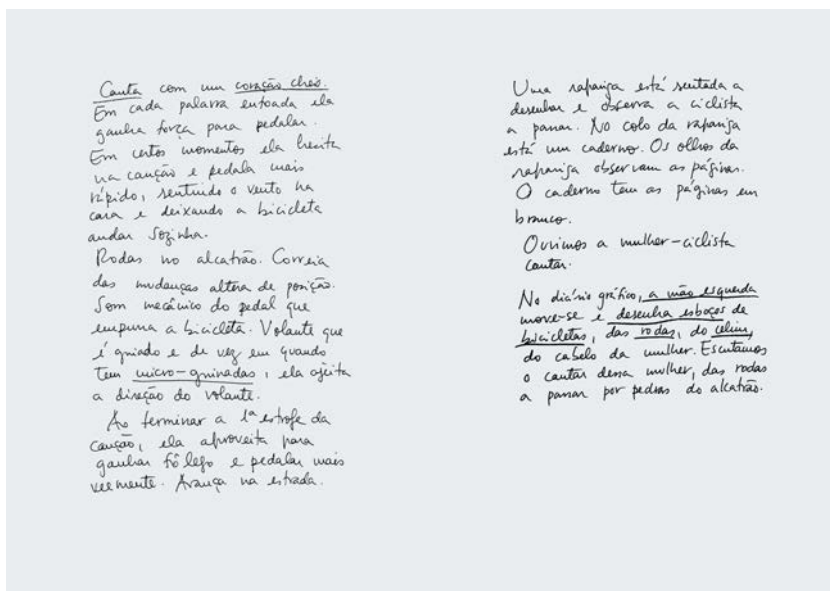 Canta com um coração cheio.
Em cada palavra entoada ela
ganha força para pedalar.
Em certos momentos ela hesita
na canção e pedala mais
rápido, sentindo o vento na
cara e deixando a bicicleta
andar sozinha.
Rodas no alcatrão. Correia
das mudanças altera de posição.
Som mecânico do pedal que
empurra a bicicleta. Volante que
é guiado e de vez em quando
tem micro-guinadas, ela ajeita
a direção do volante.
Ao terminar a 1ª estrofe da
canção, ela aproveita para
ganhar fôlego e pedalar mais
veemente. Avança na estrada.
Uma rapariga está sentada a
desenhar e observa a ciclista
a passar. No colo da rapariga
está um caderno. Os olhos da
rapariga observam as páginas.
O caderno tem as páginas em
branco.
Ouvimos a mulher-ciclista
cantar.
No diário gráfico, a mão esquerda
move-se e desenha esboços de
bicicletas, das rodas, do celim,
do cabelo da mulher. Escutamos
o cantar dessa mulher, das rodas
a passar por pedras do alcatrão.